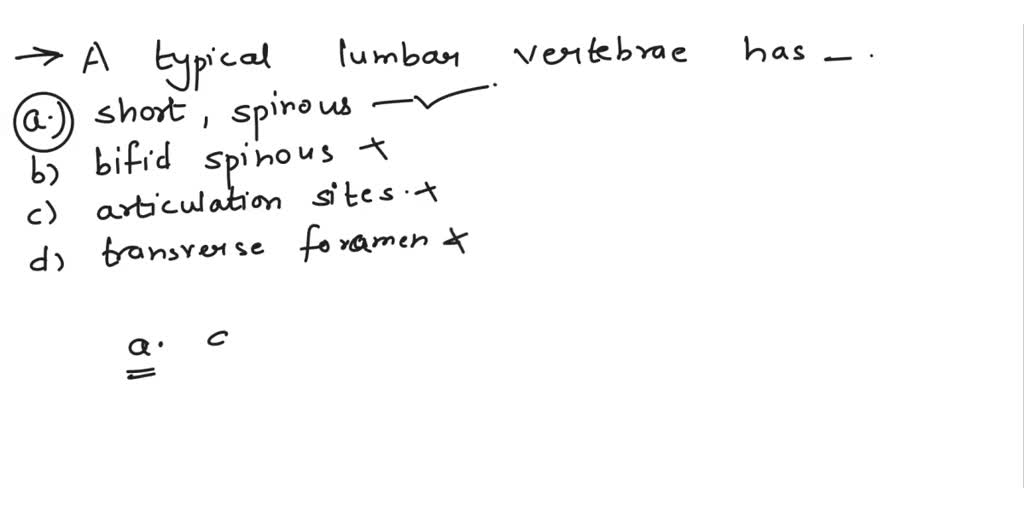 → A typical lumbar vertebrae has _ .
a.) short, spinous —✓
b) bifid spinous x
c) articulation sites. x
d) transverse foramen x
a. c